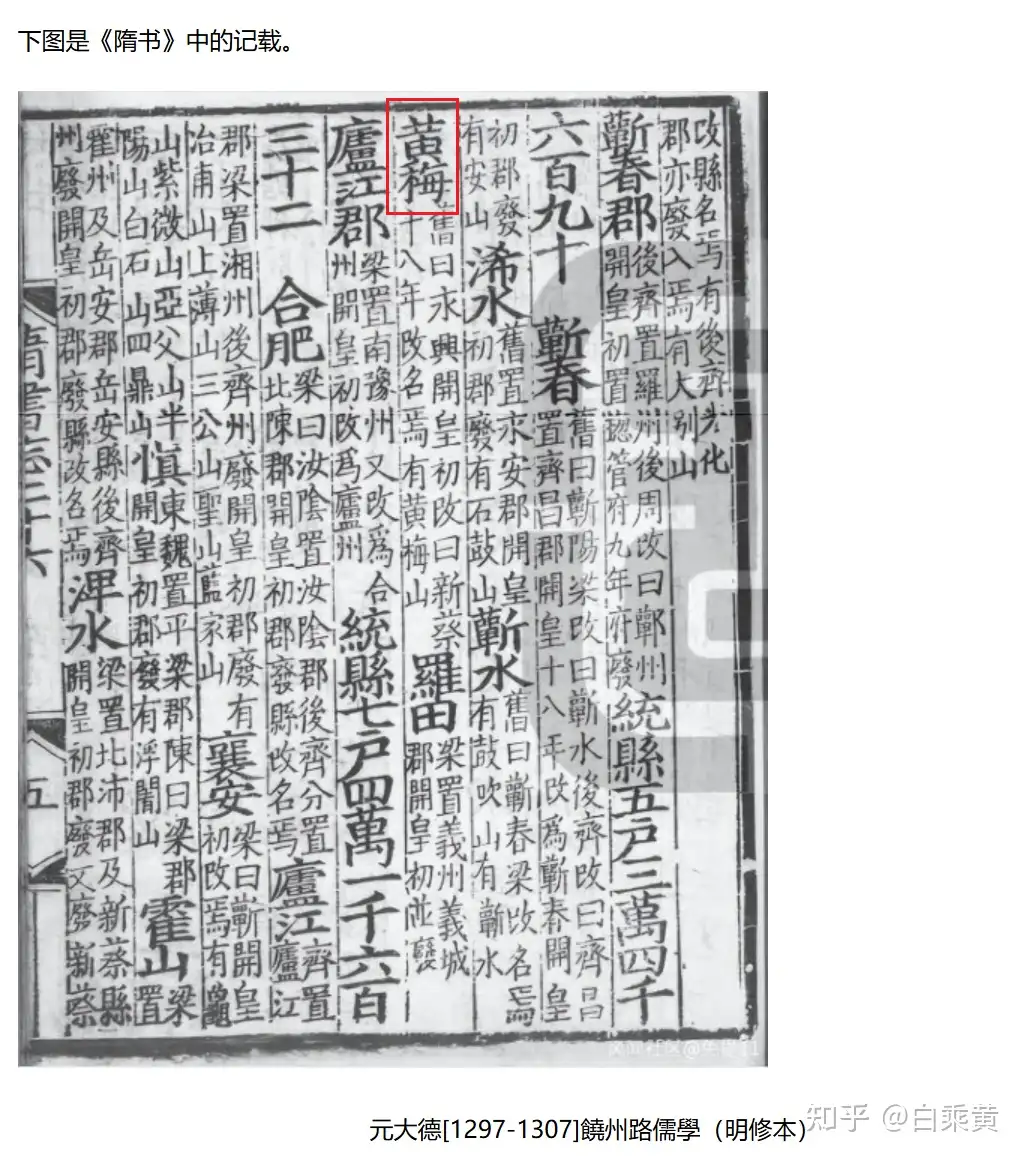 下图是《隋书》中的记载。
改縣名焉有後齊光化
郡亦廢入焉有大别山
蘄春郡
後齊置羅州後周改曰鄿州
開皇初置總管府九年府廢
統縣五戸三萬四千
六百九十
蘄春
舊曰蘄陽梁改曰蘄水後齊改曰齊昌
置齊昌郡開皇十八年改爲蘄春開皇
初郡廢
有安山
浠水
舊置永安郡開皇
初郡廢有石鼓山
蘄水
舊曰蘄春梁改名焉
有鼓吹山有蘄水
黄梅
舊曰永興開皇初改曰新蔡
十八年改名焉有黄梅山
羅田
梁置義州義城
郡開皇初並廢
廬江郡
梁置南豫州又改爲合
州開皇初改爲廬州
統縣七戸四萬一千六百
三十二
合肥
梁曰汝陰置汝陰郡後齊分置
北陳郡開皇初郡廢縣改名焉
廬江
齊置
廬江
郡梁置湘州後齊州廢開皇初郡廢有
冶甫山上薄山三公山聖山藍家山
襄安
梁曰蘄開皇
初改焉有龜
山紫微山亞父山半
陽山白石山四鼎山
慎
東魏置平梁郡陳曰梁郡
開皇初郡廢有浮闍山
霍山
梁
置
霍州及岳安郡岳安縣後齊
州廢開皇初郡廢縣改名焉
渒水
梁置北沛郡及新蔡縣
開皇初郡廢又廢新蔡
隋書志二十六
五
元大德[1297-1307]饒州路儒學（明修本）
知乎 @白乘黄